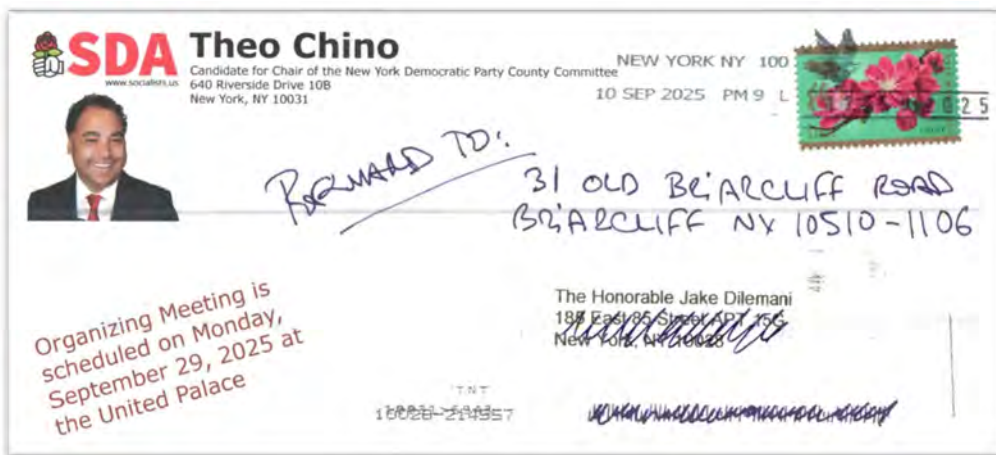 SDA
www.socialists.us
Theo Chino
Candidate for Chair of the New York Democratic Party County Committee
640 Riverside Drive 10B
New York, NY 10031
NEW YORK NY 100
10 SEP 2025 PM 9 L
FORWARD TO:
31 OLD BRIARCLIFF ROAD
BRIARCLIFF NY 10510-1106
The Honorable Jake Dilemani
New York, NY 10028
Organizing Meeting is
scheduled on Monday,
September 29, 2025 at
the United Palace